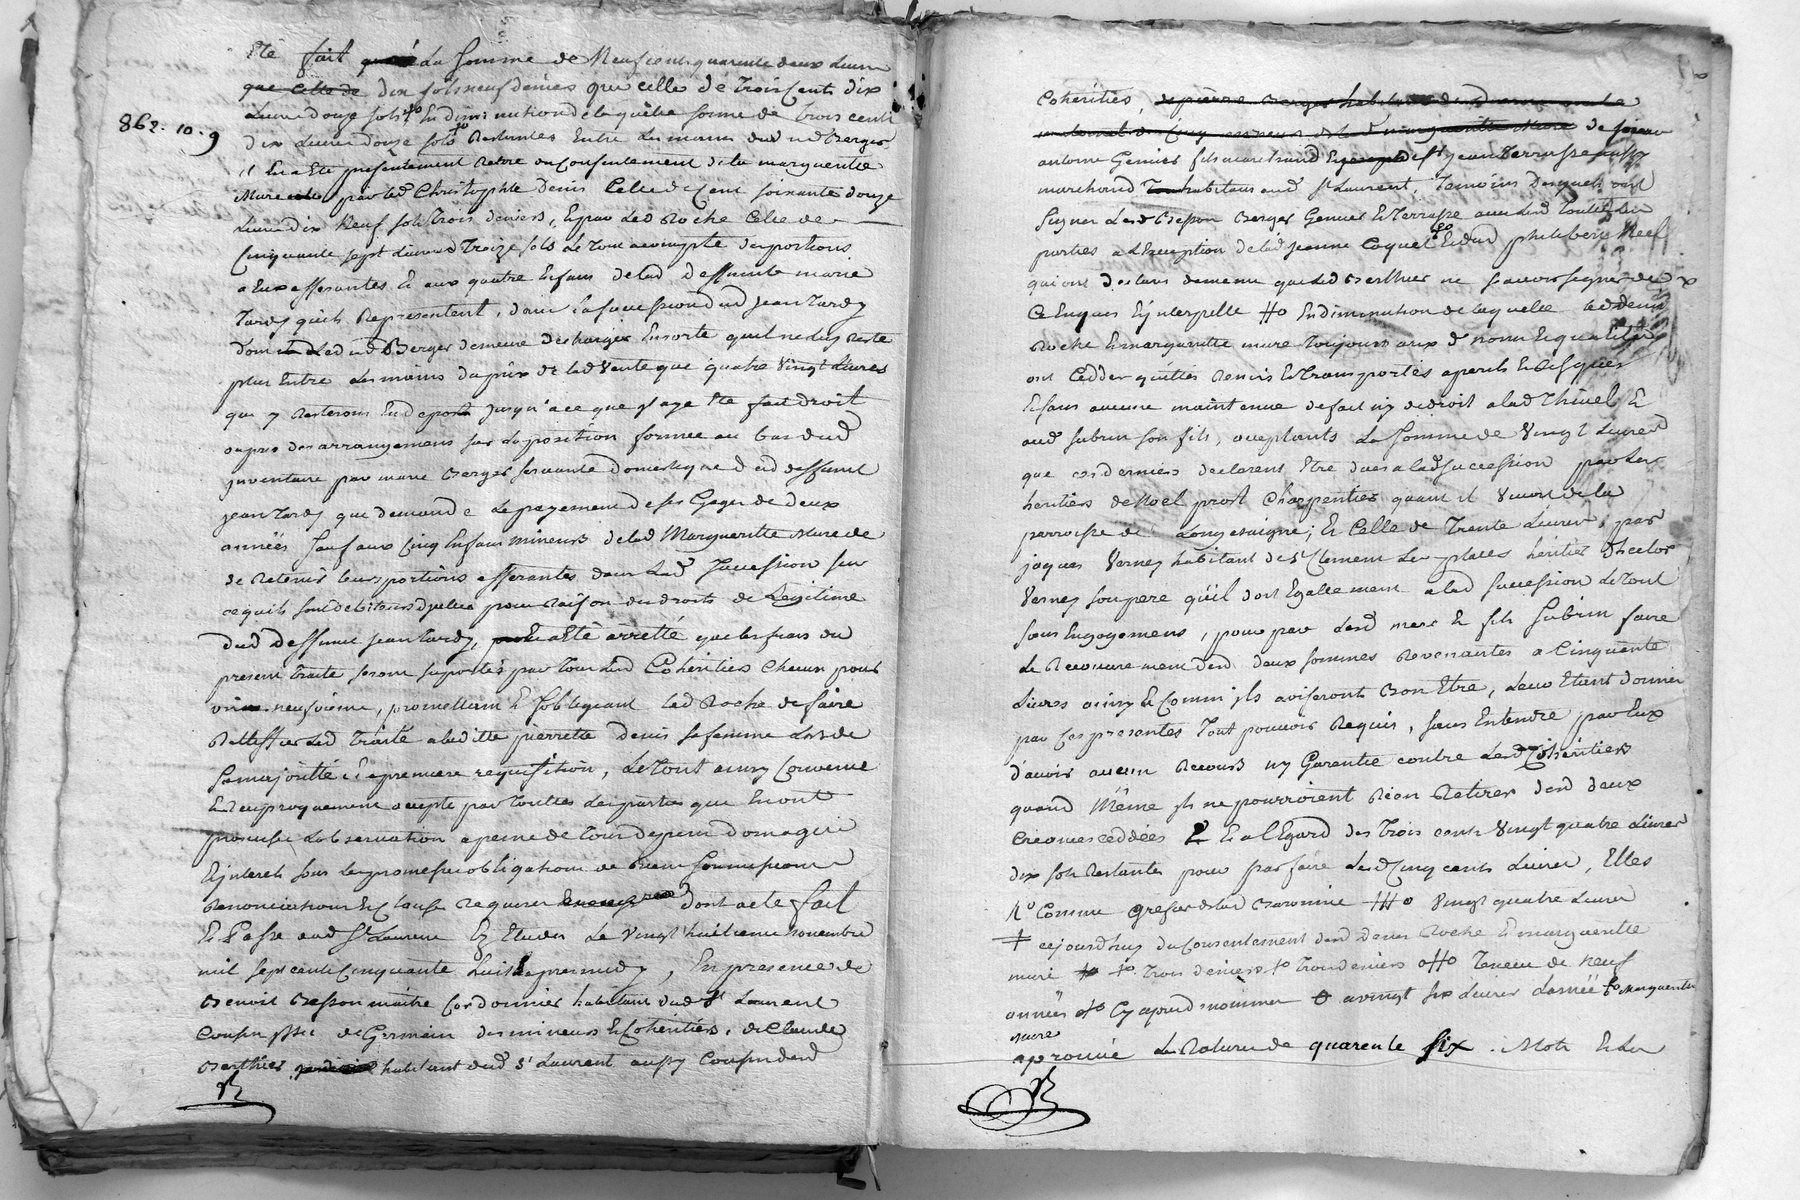 862 - 10 - 9
Eté fait La Somme de Neuf cents quarente deux Livres
que celle de dix sols neuf deniers que celle de Trois Cents dix
Livres douze sols En diminution de laquelle somme de trois cents
dix Livres douze sols Restantes Entre Les mains dud Berger
il En a Eté présentement Retiré du Consentement de la margueritte
Mure par led Christophle denis Celle de Cent soixante douze
Livres dix Neuf sols Trois deniers, Et par Led Roche Celle de
Cinquante sept Livres Treize sols Le Tout a compte des portions
a Eux afferantes Et aux quatre Enfans de lad Deffunte marie
Tardy quils Representent, dans la succession dud Jean Tardy
dont Led Berger demeure décharger Ensorte quil ne luy Reste
plus Entre Les mains du prix de lad Vente que quatre Vingt Livres
qui y Resterons En depost jusqu'a ce que y aye Eté fait droit
ou pris des arrangemens sur loposition formée au bas dud
jnventaire par marie Berger servante Domestique dud deffunt
jean Tardy qui demande Le payement de ses Gages de deux
années sauf aux Cinq Enfans mineurs de lad Margueritte Mure de
se Retenir leurs portions afferantes dans Lad Succession sur
ce quils sont debiteurs d'jcelle pour Raison des droits de Legitime
dud deffunt jean Tardy, En a Eté arretté que les frais du
present Traité seront suportés par Tous Lesd Cohéritiers chacun pour
un neufvieme, promettant Et sobligeant led Roche de faire
Rattiffier Led Traité a laditte pierrette denis sa femme Lors de
sa majoritté a la premiere requisition, Le Tout ainsy Convenu
Et Reciproquement accepté par Touttes Les parties qui En ont
promis L'observation a peine de Tous depens domages
Et jnterets sous Les promesses obligations de Biens soumissions
Renonciations Et Clauses Requises dont acte fait
Et Passé aud St Laurent Ez Etudes Le vingt huitieme novembre
mil sept cents Cinquante huit apres midy, En presence de
Benoit Besson maitre Cordonnier habitant dud St Laurent
Cousin de Germain des mineurs Et Cohéritiers, de Claude
Berthier habitant dud St Laurent aussy Cousin desd
Cohéritiés, de pierre Berger habitant de
maternel des Cinq mineurs de lad marguerite Mure de sieur
antoine Genier fils marchand Et de St jean Terrasse aussy
marchand habitans aud St Laurent, Temoins Lesquels ont
signer Lesd Besson Berger Genier Et Terrasse avec Lesd Touttes Les
parties a l'Exception de lad jeanne Coquet Et dud philibert Neel
qui ont declaré de meme que led Berthier ne scavoir signer de
ce Enquis Et jnterpellé En diminution de laquelle led denis
Roche Et marguerite mure Toujours aux d noms Et qualités
ont Cedder quitter Remis Et Transportés a perils Et risques
Et sans aucune maintenue de fait ny de droit a lad Thivel Et
aud subrin son fils, aceptants La somme de Vingt Livres
que ces derniers declarent Etre dues a lad succession par les
heritiers de Noel prost Charpentier quant il vivoit de la
parroisse de Longessaigne; Et Celle de Trente Livres, par
jaques Vernay habitant de St Clement Les places héritier d'hector
Vernay son pere quil doit Egallement a lad succession Le Tout
sans Engagemens, pour par lesd mere Et fils subrin faire
Le Recouvrement desd deux sommes Revenantes a Cinquante
Livres ainsy Et Comm' jls aviseront Bon Etre, Leur Etant donner
par Ces presentes Tout pouvoir Requis, sans Entendre par Eux
d'avoir aucun Recours ny Garentie contre Lesd Cohéritiers
quand Même jls ne pourroient Rien Retirer desd deux
Creances ceddées Et a l'Egard des Trois cents Vingt quatre Livres
dix sols Restantes pour parfaire Lesd Cinq cents Livres, Elles
Comme Greffier de lad Baronnie Vingt quatre Livres
cejourdhuy du Consentement desd denis Roche Et marguerite
mure Trois deniers Trois deniers Teneu de neuf
années Cy apres d nommer a vingt six Livres L'année Marguerite
mure
aprouvé La Rature de quarente six Mots Et Les